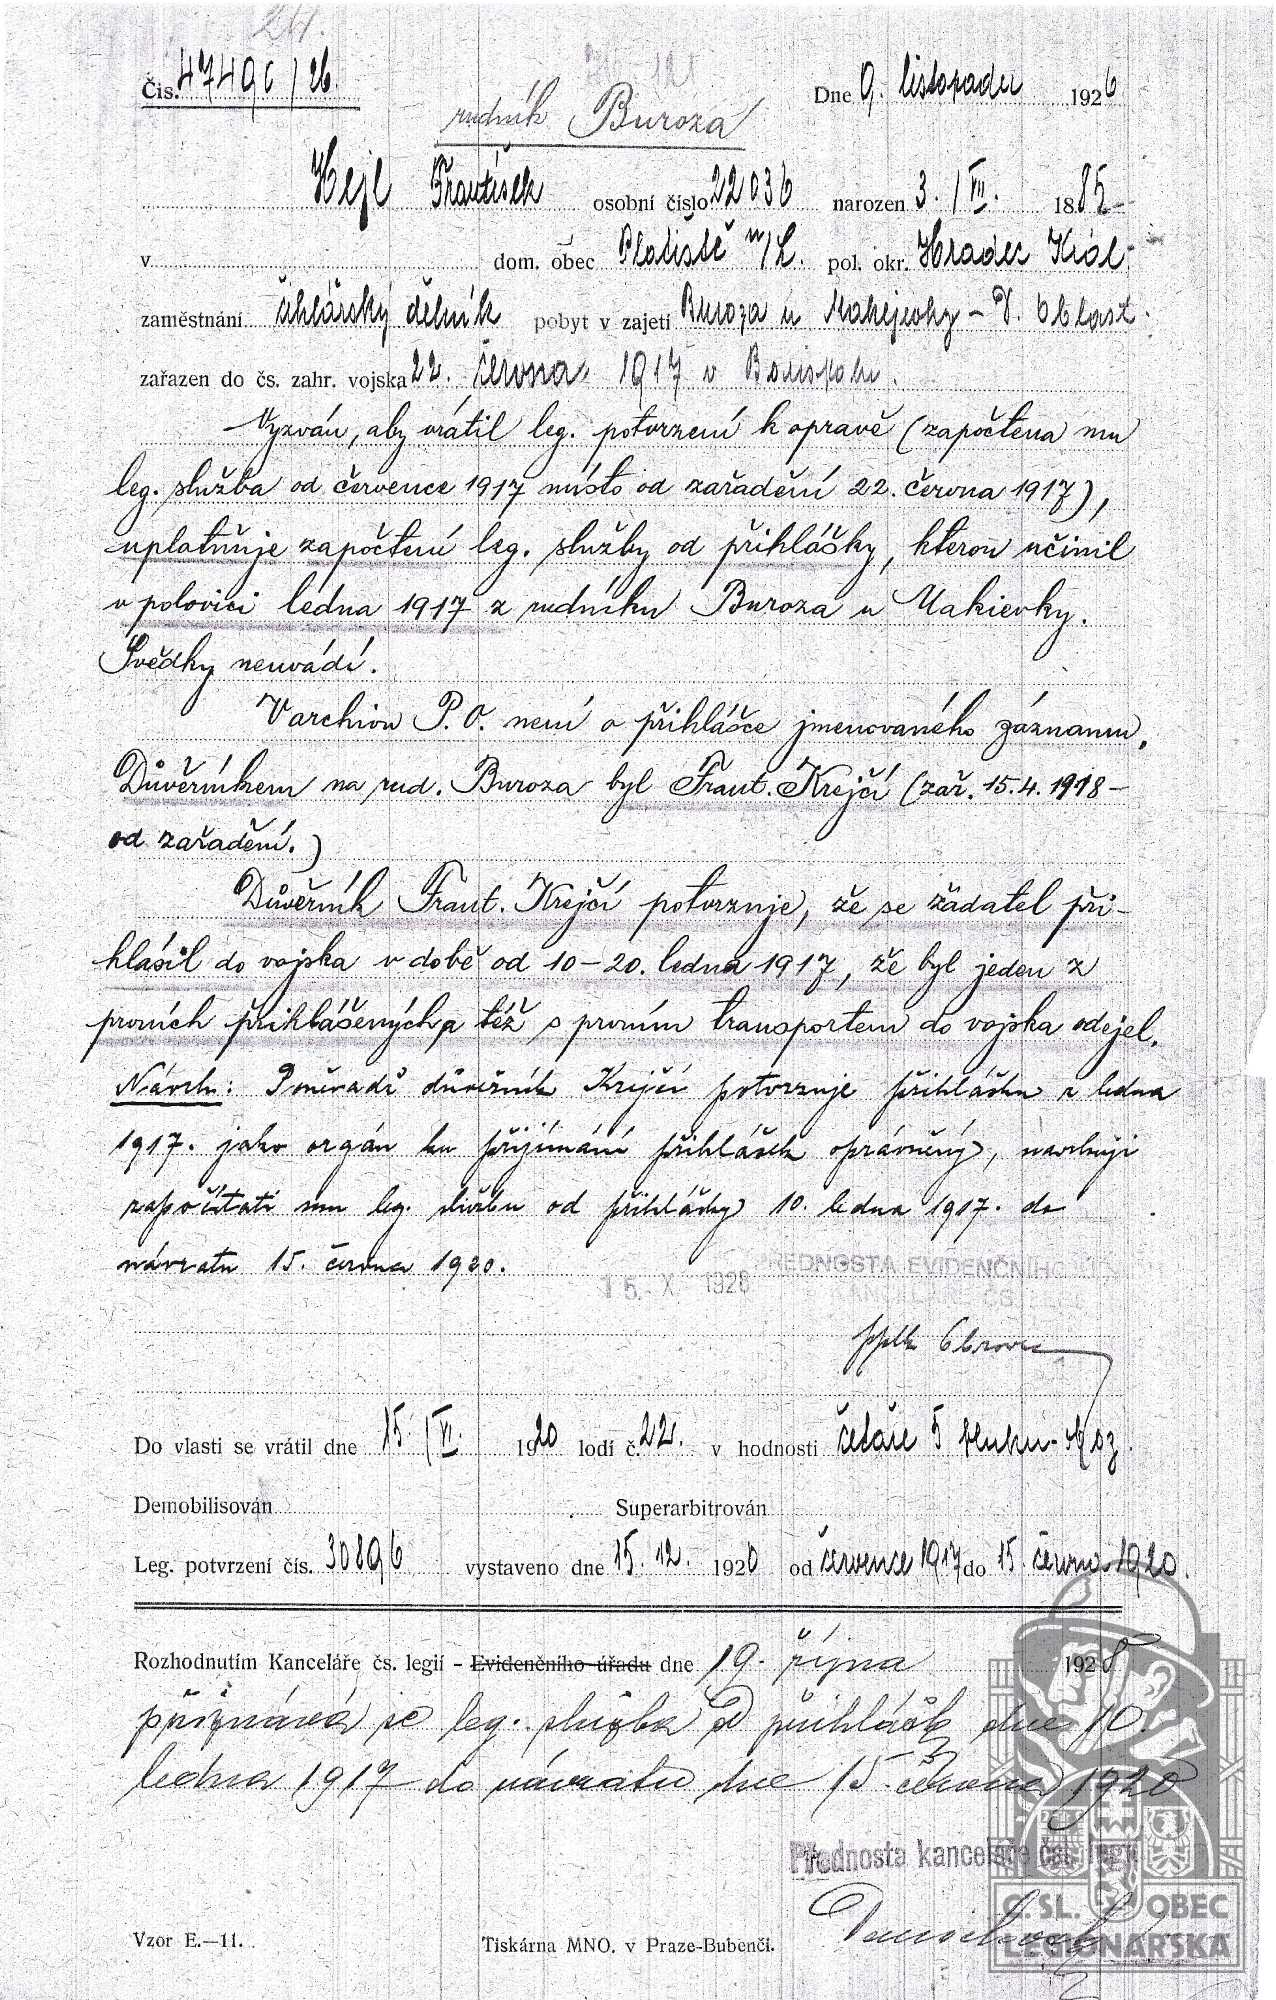 24.
Čís. 47496/26. Dne 9. listopadu 1926
rudník Buroza
Hejl František osobní číslo 22036 narozen 3./VII. 1885
v dom. obec Plotiště n/L. pol. okr. Hradec Král.
zaměstnání cihlářský dělník pobyt v zajetí Buroza u Makejevky - D. oblast.
zařazen do čs. zahr. vojska 22. června 1917 v Borispolu.
Vyzván, aby vrátil leg. potvrzení k opravě (započtena mu
leg. služba od července 1917 místo od zařadění 22. června 1917),
uplatňuje započtení leg. služby od přihlášky, kterou učinil
v polovici ledna 1917 z rudníku Buroza u Makievky.
Svědky neuvádí.
V archivu P.O. není o přihlášce jmenovaného záznamu.
Důvěrníkem na rud. Buroza byl Frant. Krejčí (zař. 15.4.1918-
od zařadění.)
Důvěrník Frant. Krejčí potvrzuje, že se žadatel při-
hlásil do vojska v době od 10-20. ledna 1917, že byl jeden z
prvních přihlášených a též s prvním transportem do vojska odejel.
Návrh: Poněvadž důvěrník Krejčí potvrzuje přihlášku z ledna
1917. jako orgán ku přijímání přihlášek oprávněný, navrhuji
započítati mu leg. službu od přihlášky 10. ledna 1917. do
návratu 15. června 1920.
15. X. 1928 PŘEDNOSTA EVIDENČNÍHO
KANCELÁŘE ČS.
pplk
Do vlasti se vrátil dne 15./VI. 1920 lodí č. 22. v hodnosti četaře 5 pluku
Demobilisován Superarbitrován
Leg. potvrzení čís. 30896 vystaveno dne 15. 12. 1920 od července 1917 do 15. června 1920.
Rozhodnutím Kanceláře čs. legií - Evidenčního úřadu dne 19. října 1928
přiznává se leg. služba od přihlášky dne 10.
ledna 1917 do návratu dne 15. června 1920
Přednosta kanceláře čsl. legií
Vzor E.—11. Tiskárna MNO. v Praze-Bubenči.
Č. SL. OBEC
LEGIONÁŘSKÁ